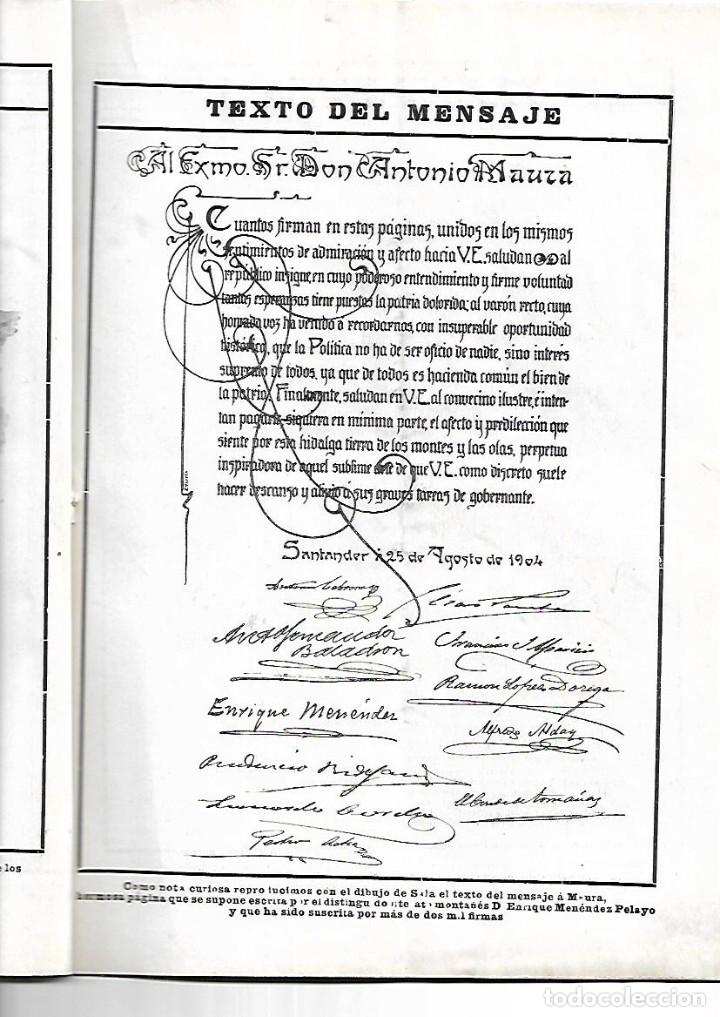 TEXTO DEL MENSAJE
Al Exmo. Sr. Don Antonio Maura
Cuantos firman en estas páginas, unidos en los mismos
sentimientos de admiración y afecto hacia V.E. saludan al
repúblico insigne, en cuyo poderoso entendimiento y firme voluntad
tantas esperanzas tiene puestas la patria dolorida; al varón recto, cuya
honrada voz ha venido a recordarnos, con insuperable oportunidad
histórica, que la Política no ha de ser oficio de nadie, sino interés
supremo de todos, ya que de todos es hacienda común el bien de
la patria. Finalmente, saludan en V.E. al convecino ilustre, é inten-
tan pagarle siquiera en mínima parte, el afecto y predilección que
siente por esta hidalga tierra de los montes y las olas, perpetua
inspiradora de aquel sublime arte de que V.E. como discreto suele
hacer descanso y alivio a sus graves tareas de gobernante.
Santander á 25 de Agosto de 1904
Baladron
Ramon Lopez Doriga
Enrique Menéndez
Alfredo Alday
Leonardo
Pedro
e los
Como nota curiosa repro lucimos con el dibujo de Sala el texto del mensaje á Maura,
hermosa página que se supone escrita por el distingu do montañés D Enrique Menéndez Pelayo
y que ha sido suscrita por más de dos mil firmas
todocoleccion